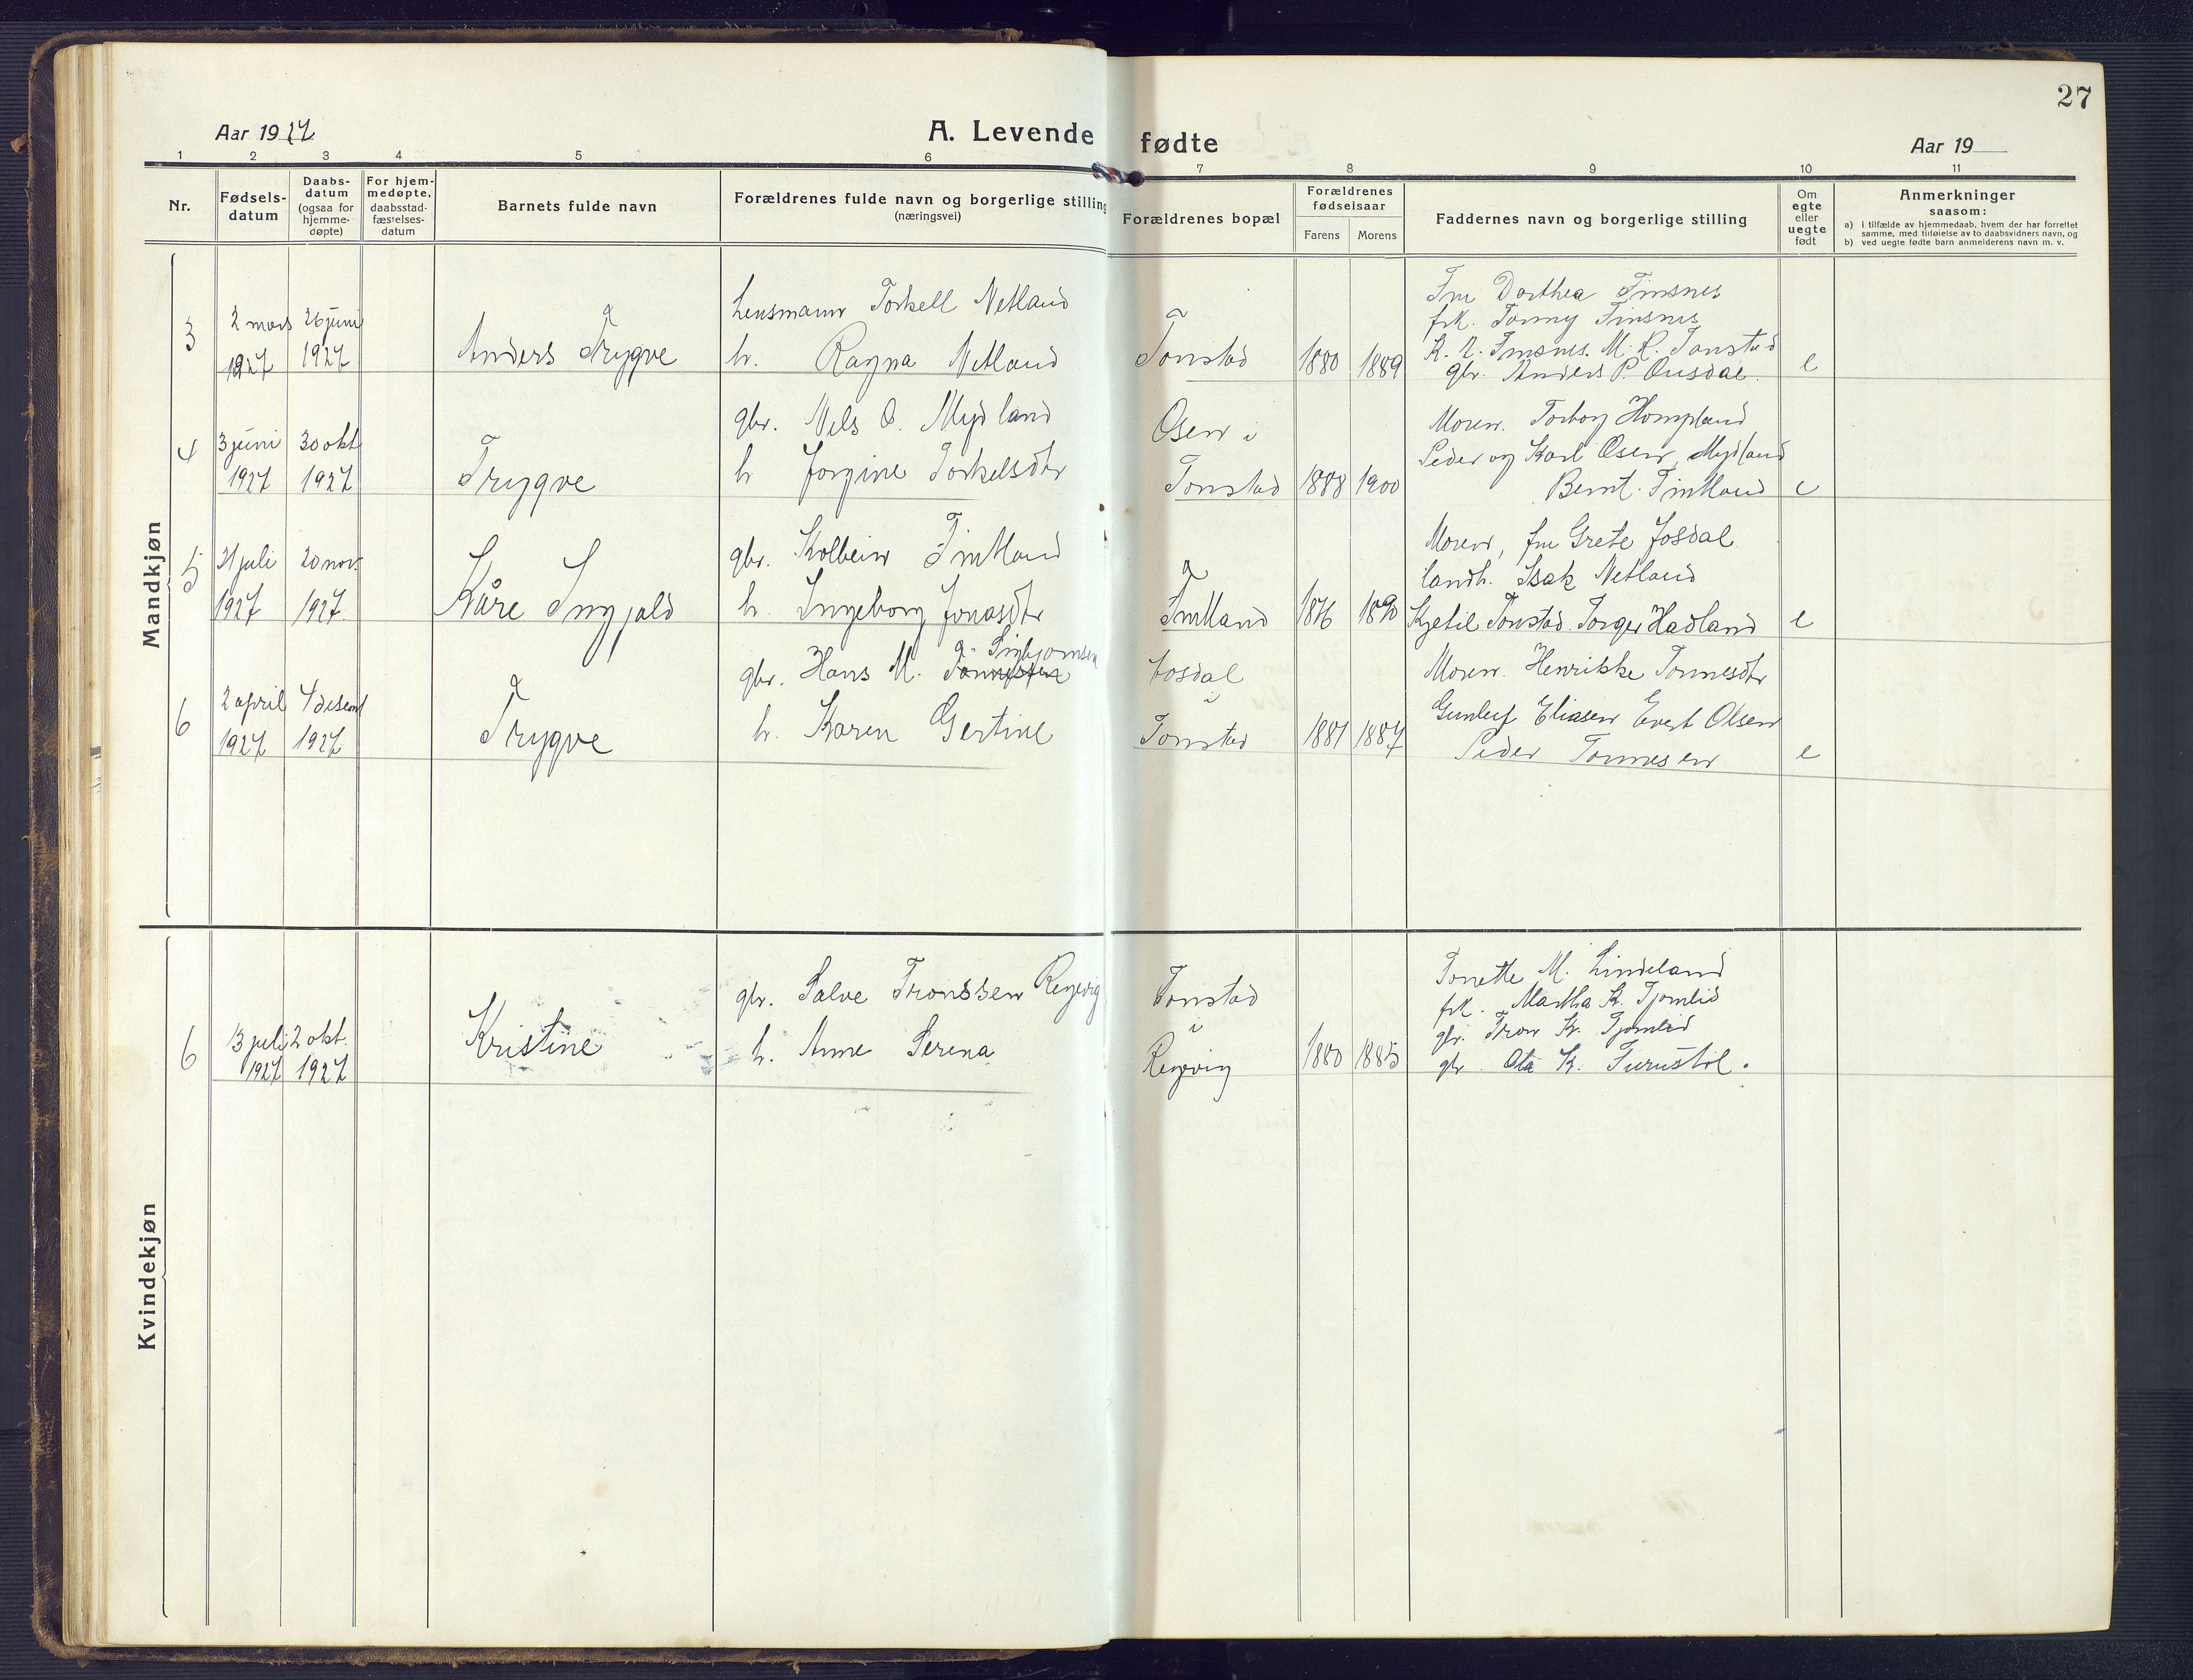 27
Aar 1927
A. Levende fødte
Aar 19
1 2 3 4 5 6 7 8 9 10 11
Nr.
Fødsels-
datum
Daabs-
datum
(ogsaa for
hjemme-
døpte)
For hjem-
medøpte,
daabsstad-
fæstelses-
datum
Barnets fulde navn
Forældrenes fulde navn og borgerlige stilling
(næringsvei)
Forældrenes bopæl
Forældrenes
fødselsaar
Farens Morens
Faddernes navn og borgerlige stilling
Om
egte
eller
uegte
født
Anmerkninger
saasom:
a) i tilfælde av hjemmedaab, hvem der har forrettet
samme, med tilføielse av to daabsvidners navn, og
b) ved uegte fødte barn anmelderens navn m. v.
Mandkjøn
3
2 mars
1927
26 juni
1927
Anders Trygve
Lensmann Torkell Netland
h. Ragna Netland
Tonstad
1880 1889
Fru Dorthea Finsnes
frk. Tonny Finsnes
K. Finsnes. M. R. Tonstad
gbr. Anders P. Ousdal.
e
4
3 juni
1927
30 okt
1927
Trygve
gbr. Nils O. Mydland
h Jorgine Torkelsdtr
Osen i
Tonstad
1888 1900
Moren. Torborg Hompland
Peder og Karl Osen, Mydland
Bernt Fintland
e
5
21 juli
1927
20 nov.
1927.
Kåre Ingjald
gbr. Kolbein Fintland
h. Ingeborg Jonasdtr
Fintland
1876 1890
Moren, fru Grete Josdal
landh. Isak Netland
Kjetil Tonstad. Torger Hadland
e
6
2 april
1927
4 desemb
1927
Trygve
Sigbjørnsen
gbr. Hans M. Tønnessen
h. Karen Gertine
Josdal
i
Tonstad
1881 1887
Moren. Henrikke Tønnesdtr
Gunleif Eliasen Evert Olsen
Peder Tønnesen
e
Kvindekjøn
6
13 juli
1927
2 okt.
1927
Kristine
gbr. Salve Tronssen Regevig
h. Anne Serena
Tonstad
i
Regevig
1880 1885
Tonette M. Lindeland
frk. Martha K. Tjomlid
gbr. Tron Kr. Tjomlid
gbr. Ola K. Furustøl.